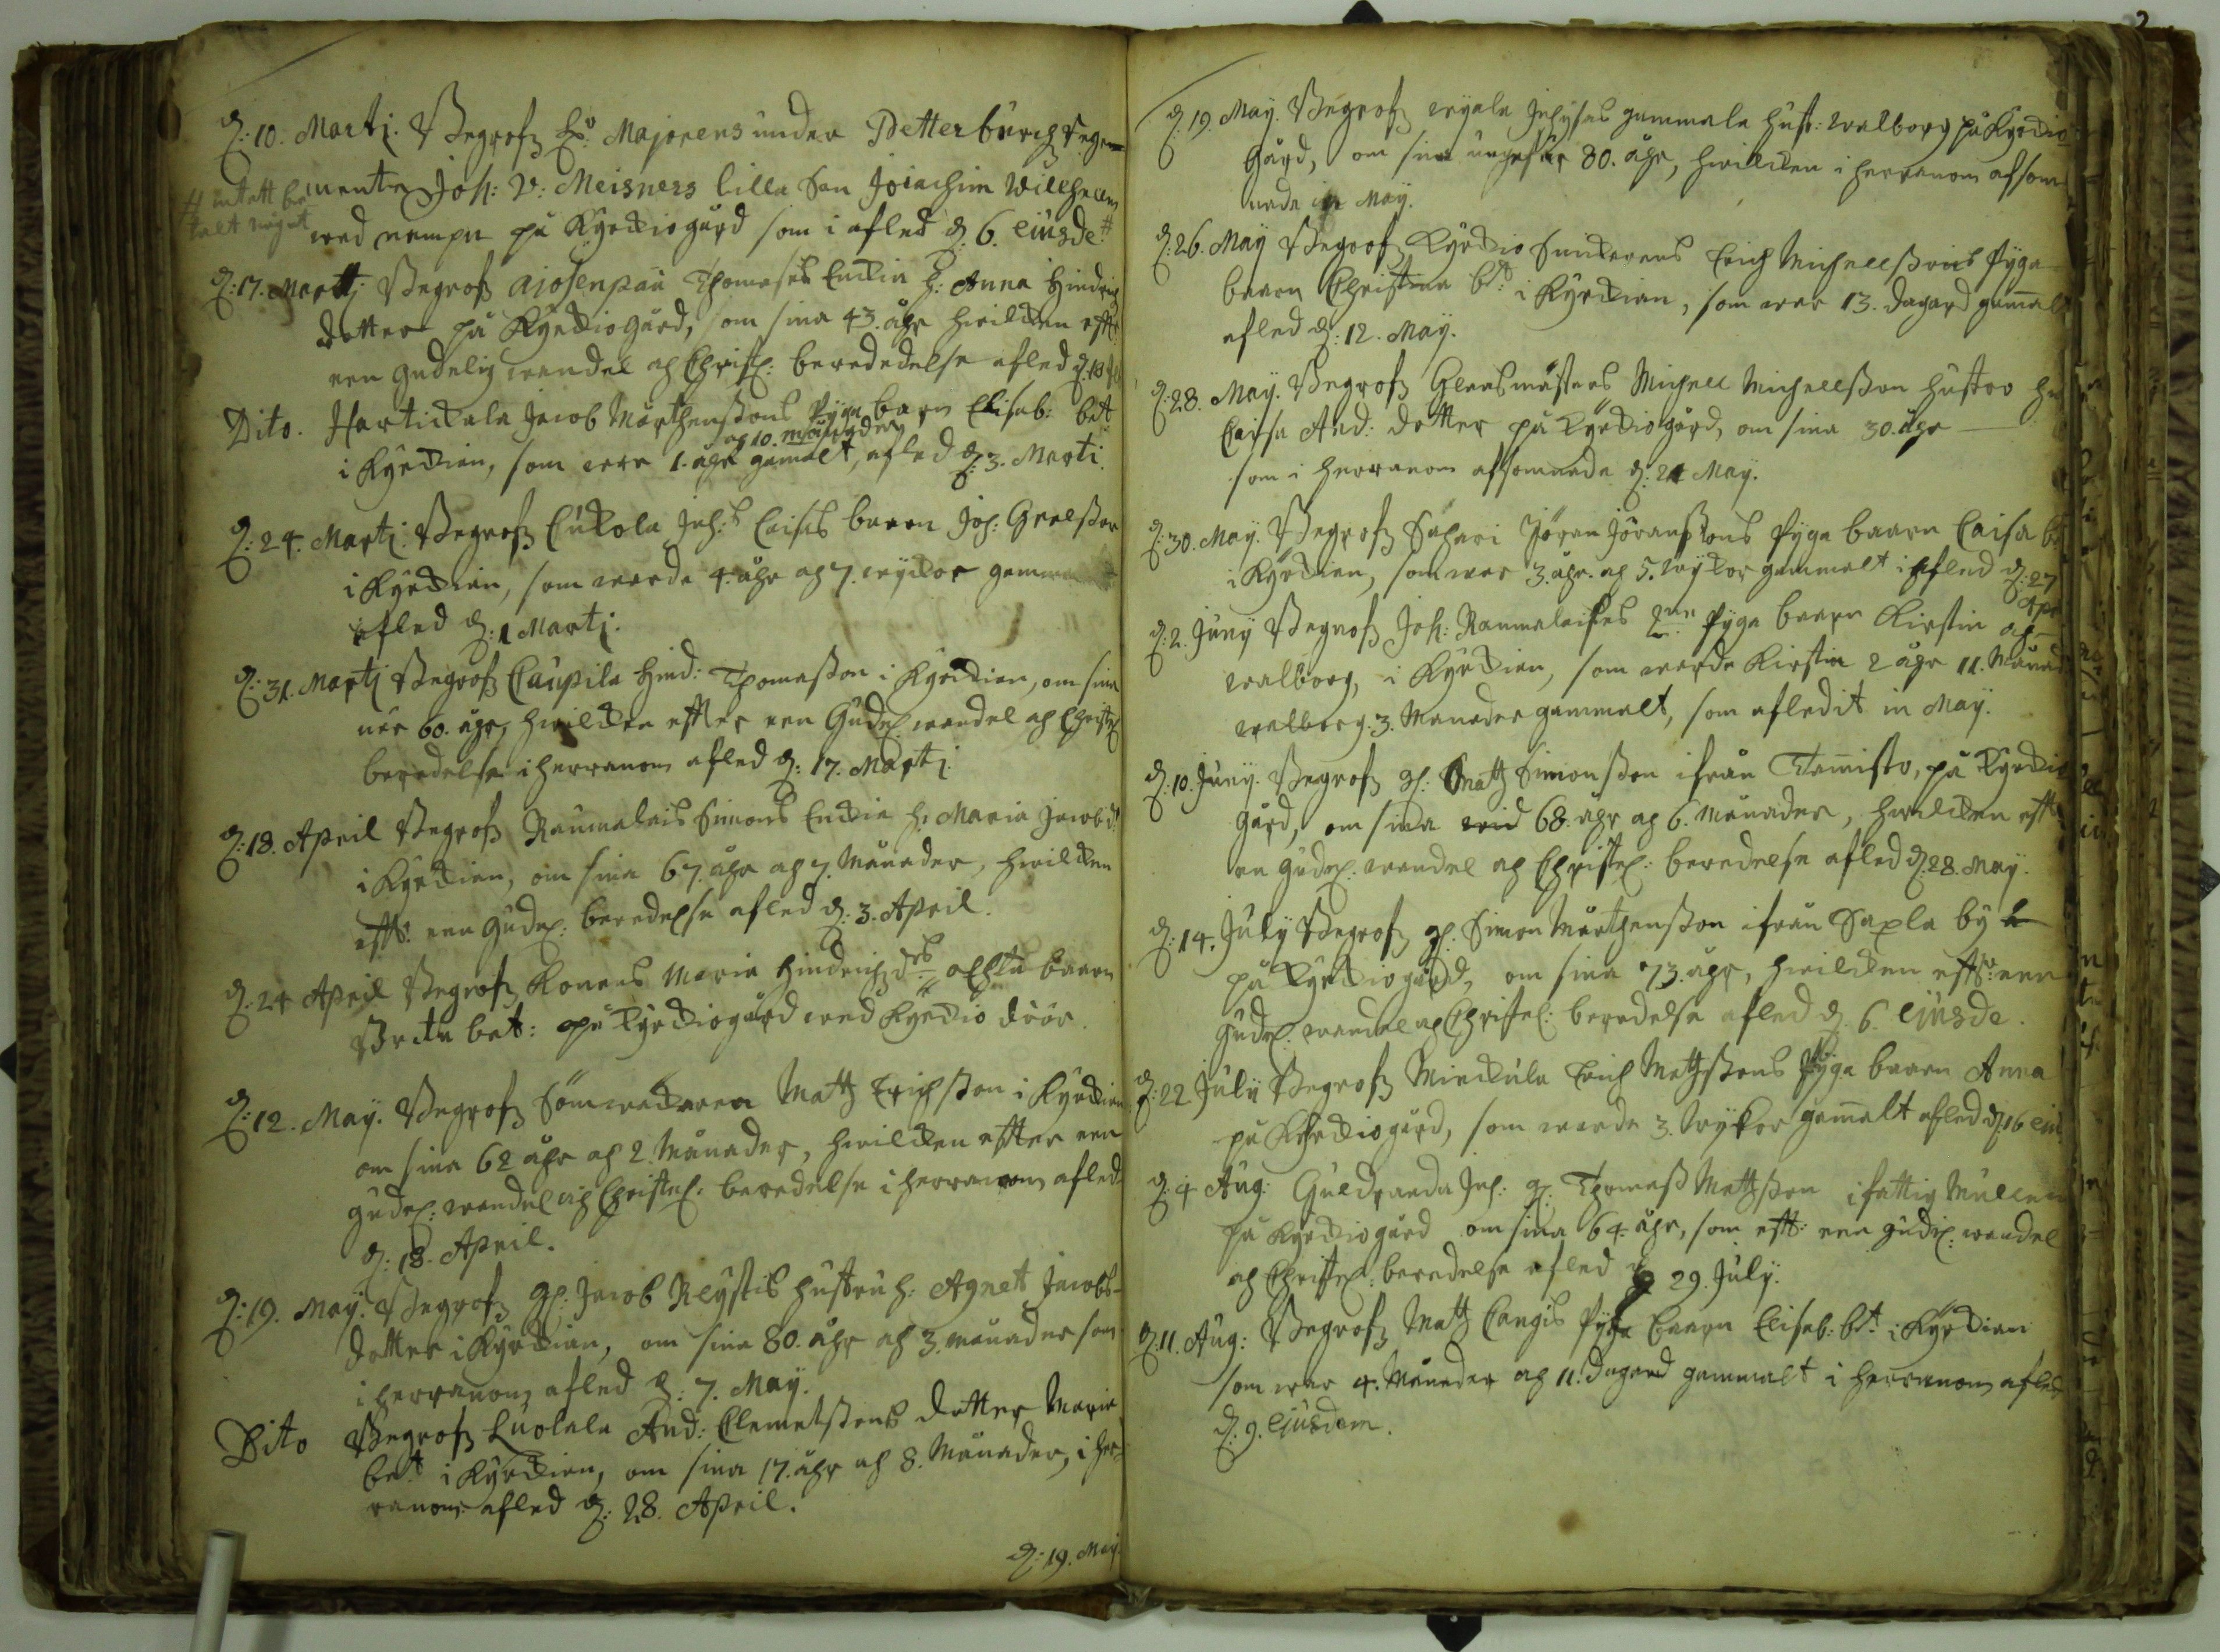 d: 10. Martj. Begrofz H:r Majorens under Petterburgz rege-
mente Joh: V: Meisners lilla Son Joiachim Willhelm
# intett be
talt något
wed nampn på Kyrckiogård som i afled d. 6. Eiusde. #
d: 17. Martj Begrofz Ajosenpää Thomases Enckia h: Anna Hindrichz
dotter på Kyrckiogård, som sina 43. åhr hwilcken efft:
een gudelig wandel och Christ: beredelse afled d. 18
Dito. Hartickala Jacob Mårthenssons Pyga barn Elisab: bet
och 10. månader
i Kyrckian, som war 1. åhr gamalt, afled d: 3. Marti.
d: 24. Martj: Begrofz Eukola Joh: Caises baarn Joh: Grelsson
i Kyrckian, som warde 4. åhr och 7. wyckor gammalt
afled d: 1 Martj.
d: 31. Martj Begrofz Caupila Hind: Thomasson i Kyrckian, om sina
när 60. åhr, hwilcken effter een Gudel: wandel och Christel:
beredelse i herranom afled d: 17. Martj.
d: 18. April Begrofz Raumalais Simons Enckia h: Maria Jacobd:
i Kyrckian, om sina 67. åhr och 7. Månader, hwilcken
efft: een Gudel: beredelse afled d: 3. April.
d: 24 April Begrofz Konans Maria Hindrichzd:s ächta baarn
Brita bet: på Kyrckiogård wed Kyrckio döör.
d: 12. May. Begrofz Matz Erichsson i Kyrckian
om sina 62 åhr och 2. Månader, hwilcken effter een
gudel: wandel och Christel: beredelse i herranom afled
d: 18. April.
d: 19. May. Begrofz gl: Jacob Reystis hustru h: Agnet Jacobs-
dotter i Kyrckian, om sina 80. åhr och 3. månader som
i herranom afled d: 7. May.
Dito Begrofz Luolala And: Clemetssons dotter Maria
bet i Kyrckian, om sina 17. åhr och 8. Månader, i her-
ranom afled d: 28. April.
d: 19. May.
d: 19. May. Begrofz gammala hust: Walborg på Kyrckio-
gård, om sina ungefär 80. åhr, hwilcken i herranom afsom-
nade in May.
d: 26. May Begrofz Kyrckio Erich Michellssons Pyga
baarn Christina b:t i Kyrckian, som war 13. dagard gamalt
afled d: 12. May.
d: 28. May. Begrofz Glaasmästers Michell Michellsson hustro h:
Caisa And: dotter på Kyrckiogård, om sina 30. åhr
som i herranom afsomnade d: 21 May.
d: 30. May. Begrofz Sahari Jöran Jöranssons Pyga baarn Caisa b:
i Kyrckian, som war 3. åhr. och 5. Wykor gammalt afled d: 27
Apr
d: 2. Juny Begrofz Joh: Raumalaises 2:ne Pyga baarn Kirstin och
Walborg, i Kyrckian, som warde Kirstin 2 åhr 11. Månad
Walborg. 3. Månader gammalt, som afledit in May.
d: 10. Juny. Begrofz gl: Matz Simonsson ifrån Tamisto, på Kyrckio
gård, om sina 68. åhr och 6. Månader, hwilcken efft:
en gudel: wandel och Christel: beredelse afled d: 28. May.
d: 14. July Begrofz gl: Simon Mårthensson ifrån Saxla by
på Kyrckiogård, om sina 73. åhr, hwilcken efft: een
Gudel: wandel och Christel: beredelse afled d. 6. Ejusde.
d: 22 July Begrofz Minckula Erich Matzsons Pyga baarn Anna
på Kyrckiogård, som warde 3. Wykor gammalt afled d: 16 eiu:
d: 4 Aug: Guldranda Joh: gl: Thomass Matzsson i fattig
på Kyrckiogård om sina 64. åhr, som efft: een gudel: wandel
och Christel: beredelse afled d 29. July.
d: 11. Aug: Begrofz Matz Cangis Pyga baarn Elisab: b:t i Kyrckian
som war 4. Månader och 11. dagard gammalt i herranom afled
d: 9. Ejusdem.